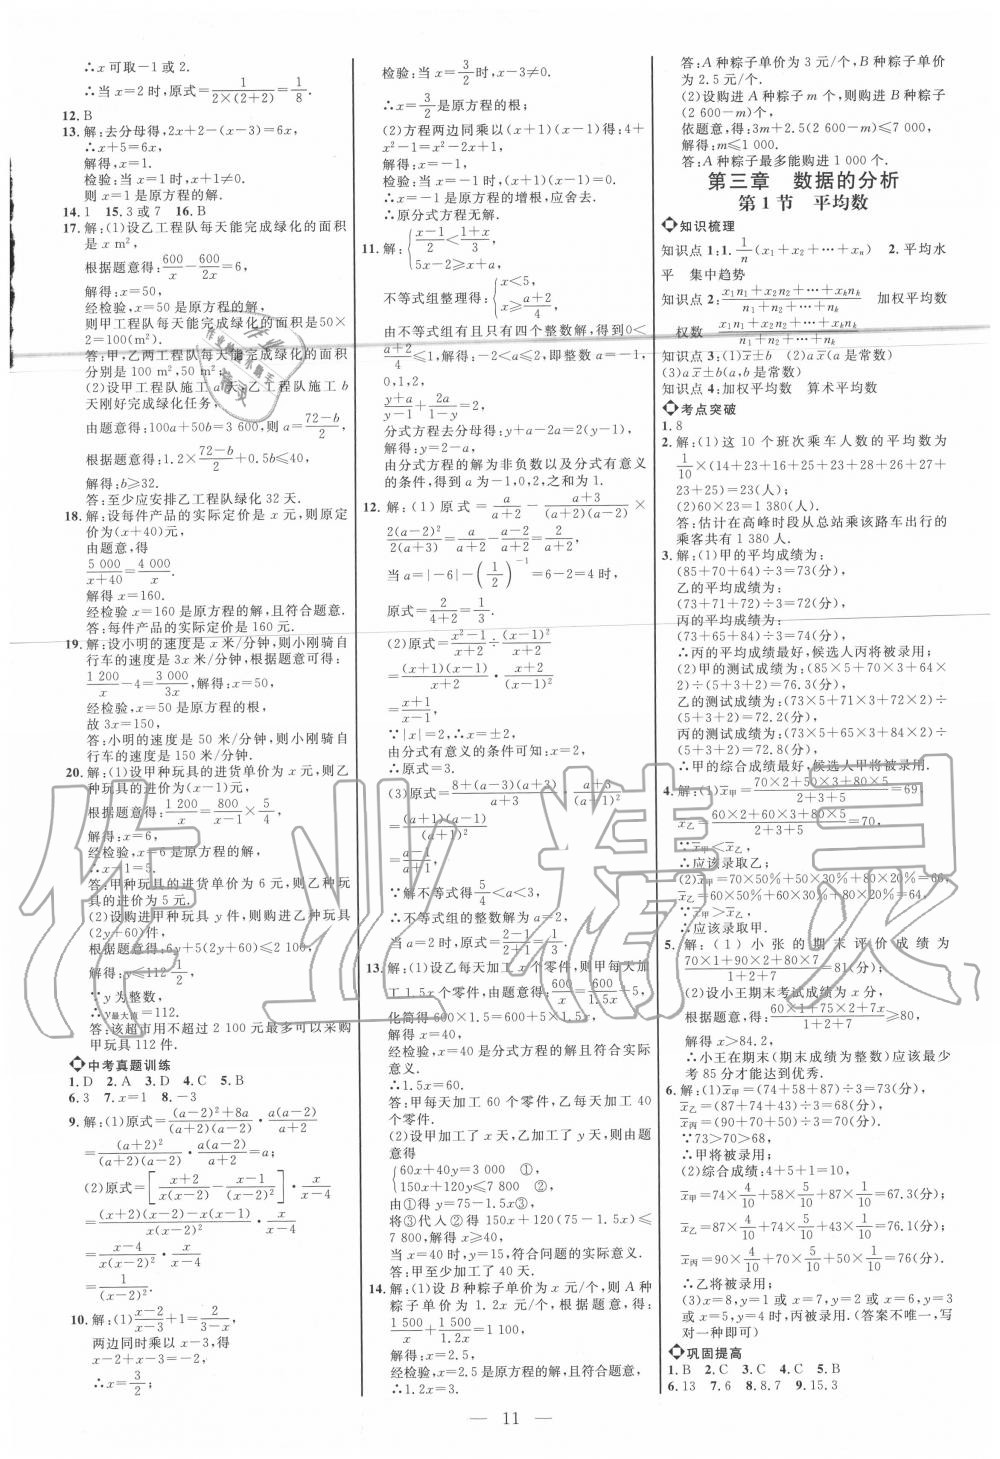 ∴x可取-1或2.
∴当x=2时,原式=1/(2×(2+2))=1/8.
12.B
13.解:去分母得,2x+2-(x-3)=6x,
∴x+5=6x,
解得,x=1.
检验:当x=1时,x+1≠0.
则x=1是原方程的解.
14.1 15.3或7 16.B
17.解:(1)设乙工程队每天能完成绿化的面积
是x m²,
根据题意得:600/x-600/2x=6,
解得:x=50,
经检验,x=50是原方程的解,
则甲工程队每天能完成绿化的面积是50×
2=100(m²).
答:甲,乙两工程队每天能完成绿化的面积
分别是100 m²,50 m²;
(2)设甲工程队施工a天,乙工程队施工b
天刚好完成绿化任务,
由题意得:100a+50b=3 600,则a=(72-b)/2,
根据题意得:1.2×(72-b)/2+0.5b≤40,
解得:b≥32.
答:至少应安排乙工程队绿化32天.
18.解:设每件产品的实际定价是x元,则原定
价为(x+40)元,
由题意,得
5 000/(x+40)=4 000/x.
解得x=160.
经检验x=160是原方程的解,且符合题意.
答:每件产品的实际定价是160元.
19.解:设小明的速度是x米/分钟,则小刚骑自
行车的速度是3x米/分钟,根据题意可得:
1 200/x-4=3 000/3x,解得:x=50,
经检验,x=50是原方程的根,
故3x=150,
答:小明的速度是50米/分钟,则小刚骑自
行车的速度是150米/分钟.
20.解:(1)设甲种玩具的进货单价为x元,则乙
种玩具的进价为(x-1)元,
根据题意得:1 200/x=800/(x-1)×5/4,
解得:x=6,
经检验,x=6是原方程的解,
∴x-1=5.
答:甲种玩具的进货单价为6元,则乙种玩
具的进价为5元.
(2)设购进甲种玩具y件,则购进乙种玩具
(2y+60)件,
根据题意得:6y+5(2y+60)≤2 100,
解得:y≤112 1/2,
∵y为整数,
∴y最大值=112.
答:该超市用不超过2 100元最多可以采购
甲玩具112件.
中考真题训练
1.D 2.A 3.D 4.C 5.B
6.3 7.x=1 8.-3
9.解:(1)原式=((a-2)²+8a)/((a+2)(a-2))·a(a-2)/(a+2)
=(a+2)²/((a+2)(a-2))·a(a-2)/(a+2)=a;
(2)原式=[(x+2)/(x(x-2))-(x-1)/(x-2)²]·x/(x-4)
=((x+2)(x-2)-x(x-1))/(x(x-2)²)·x/(x-4)
=(x-4)/(x(x-2)²)·x/(x-4)
=1/(x-2)².
10.解:(1)(x-2)/(x-3)+1=2/(3-x),
两边同时乘以x-3,得
x-2+x-3=-2,
∴x=3/2;
检验:当x=3/2时,x-3≠0.
∴x=3/2是原方程的根;
(2)方程两边同乘以(x+1)(x-1)得:4+
x²-1=x²-2x+1,
解得:x=-1,
检验:当x=-1时,(x+1)(x-1)=0.
∴x=-1是原方程的增根,应舍去.
∴原分式方程无解.
11.解:{(x-1)/2<(1+x)/3,
5x-2≥x+a,
不等式组整理得:{x<5,
x≥(a+2)/4,
由不等式组有且只有四个整数解,得到0<
(a+2)/4≤1,解得:-2<a≤2,即整数a=-1,
0,1,2,
(y+a)/(y-1)+2a/(1-y)=2,
分式方程去分母得:y+a-2a=2(y-1),
解得:y=2-a,
由分式方程的解为非负数以及分式有意义
的条件,得到a为-1,0,2,之和为1.
12.解:(1)原式=a/(a+2)-(a+3)/((a+2)(a-2))×
2(a-2)²/2(a+3)=a/(a+2)-(a-2)/(a+2)=2/(a+2)
当a=|-6|-(1/2)⁻¹=6-2=4时,
原式=2/(4+2)=1/3.
(2)原式=(x²-1)/(x+2)÷(x-1)²/(x+2)
=(x+1)(x-1)/(x+2)·(x+2)/(x-1)²
=(x+1)/(x-1).
∵|x|=2,∴x=±2,
由分式有意义的条件可知:x=2,
∴原式=3.
(3)原式=(8+(a-3)(a+3))/(a+3)·(a+3)/(a+1)²
=(a+1)(a-1)/(a+1)²
=(a-1)/(a+1),
∵解不等式得5/4<a<3,
∴不等式组的整数解为a=2,
当a=2时,原式=(2-1)/(2+1)=1/3.
13.解:(1)设乙每天加工x个零件,则甲每天加
工1.5x个零件,由题意得:600/x=600/1.5x+5,
化简得600×1.5=600+5×1.5x,
解得x=40,
经检验,x=40是分式方程的解且符合实际
意义.
∴1.5x=60.
答:甲每天加工60个零件,乙每天加工40
个零件.
(2)设甲加工了x天,乙加工了y天,则由题
意得
{60x+40y=3 000 ①,
150x+120y≤7 800 ②,
由①得y=75-1.5x③,
将③代入②得150x+120(75-1.5x)≤
7 800,解得x≥40,
当x=40时,y=15,符合问题的实际意义.
答:甲至少加工了40天.
14.解:(1)设B种粽子单价为x元/个,则A种
粽子单价为1.2x元/个,根据题意,得:
1 500/x+1 500/1.2x=1 100,
解得:x=2.5,
经检验,x=2.5是原方程的解,且符合题意,
∴1.2x=3.
答:A种粽子单价为3元/个,B种粽子单价
为2.5元/个.
(2)设购进A种粽子m个,则购进B种粽子
(2 600-m)个,
依题意,得:3m+2.5(2 600-m)≤7 000,
解得:m≤1 000.
答:A种粽子最多能购进1 000个.
第三章 数据的分析
第1节 平均数
知识梳理
知识点1:1.1/n(x₁+x₂+…+xₙ) 2.平均水
平 集中趋势
知识点2:(x₁n₁+x₂n₂+…+xₖnₖ)/(n₁+n₂+…+nₖ) 加权平均数
权数 (x₁n₁+x₂n₂+…+xₖnₖ)/(n₁+n₂+…+nₖ)
知识点3:(1)x̄±b (2)ax̄(a是常数)
(3)ax̄±b(a,b是常数)
知识点4:加权平均数 算术平均数
考点突破
1.8
2.解:(1)这10个班次乘车人数的平均数为
1/10×(14+23+16+25+23+28+26+27+
23+25)=23(人);
(2)60×23=1 380(人).
答:估计在高峰时段从总站乘该路车出行的
乘客共有1 380人.
3.解:(1)甲的平均成绩为:
(85+70+64)÷3=73(分),
乙的平均成绩为:
(73+71+72)÷3=72(分),
丙的平均成绩为:
(73+65+84)÷3=74(分),
∴丙的平均成绩最好,候选人丙将被录用;
(2)甲的测试成绩为:(85×5+70×3+64×
2)÷(5+3+2)=76.3(分),
乙的测试成绩为:(73×5+71×3+72×2)÷
(5+3+2)=72.2(分),
丙的测试成绩为:(73×5+65×3+84×2)÷
(5+3+2)=72.8(分).
∴甲的综合成绩最好,候选人甲将被录用.
4.解:(1)x̄甲=(70×2+50×3+80×5)/(2+3+5)=69,
x̄乙=(60×2+60×3+80×5)/(2+3+5)=70,
∵x̄甲<x̄乙,
∴应该录取乙;
(2)x̄甲=70×50%+50×30%+80×20%=66,
x̄乙=60×50%+60×30%+80×20%=64,
∵x̄甲>x̄乙,
∴应该录取甲.
5.解:(1)小张的期末评价成绩为
(70×1+90×2+80×7)/(1+2+7)=81(分);
(2)设小王期末考试成绩为x分,
根据题意,得:(60×1+75×2+7x)/(1+2+7)≥80,
解得x≥84.2,
∴小王在期末(期末成绩为整数)应该最少
考85分才能达到优秀.
6.解:(1)x̄甲=(74+58+87)÷3=73(分),
x̄乙=(87+74+43)÷3=68(分),
x̄丙=(90+70+50)÷3=70(分),
∵73>70>68,
∴甲将被录用;
(2)综合成绩:4+5+1=10,
x̄甲=74×4/10+58×5/10+87×1/10=67.3(分);
x̄乙=87×4/10+74×5/10+43×1/10=76.1(分);
x̄丙=90×4/10+70×5/10+50×1/10=76(分).
∴乙将被录用;
(3)x=8,y=1或x=7,y=2或x=6,y=3
或x=5,y=4时,丙被录用.(答案不唯一,写
对一种即可)
巩固提高
1.B 2.C 3.C 4.C 5.B
6.13 7.6 8.8.7 9.15.3
— 11 —
作业精灵